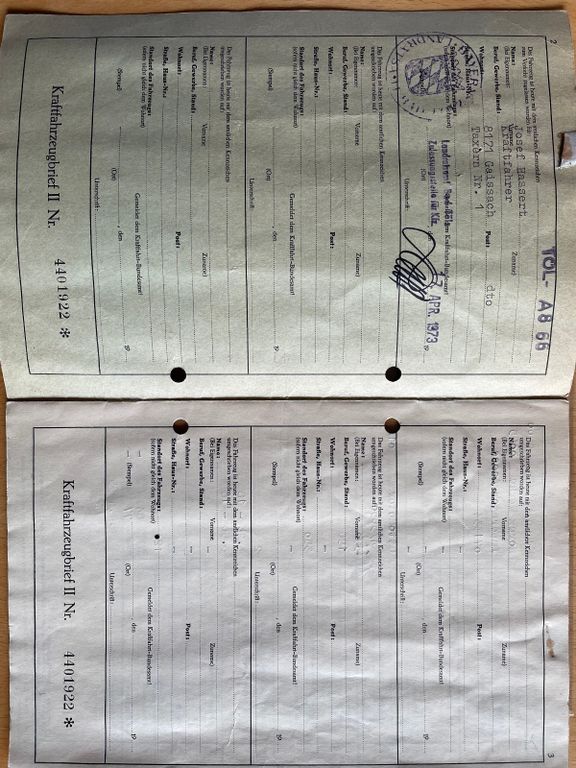 2
Das Fahrzeug ist heute mit dem amtlichen Kennzeichen
TÖL- A 8 66
Name: Josef Hassert
(Bei Eigennamen: Vorname Zuname)
Beruf, Gewerbe, Stand: Kraftfahrer
Wohnort: 8171 Gaissach Post: dto
Taxern Nr. 1
Standort des Fahrzeugs:
(sofern nicht gleich dem Wohnort)
Landratsamt Bad Tölz
Zulassungsstelle für Kfz.
APR. 1973
(Ort)
Unterschrift:
Das Fahrzeug ist heute mit dem amtlichen Kennzeichen
umgeschrieben worden auf:
Name:
(Bei Eigennamen: Vorname Zuname)
Beruf, Gewerbe, Stand:
Wohnort: Post:
Straße, Haus-Nr.:
Standort des Fahrzeugs:
(sofern nicht gleich dem Wohnort)
Gemeldet dem Kraftfahrt-Bundesamt!
, den 19
(Stempel) (Ort)
Unterschrift:
Das Fahrzeug ist heute mit dem amtlichen Kennzeichen
umgeschrieben worden auf:
Name:
(Bei Eigennamen: Vorname Zuname)
Beruf, Gewerbe, Stand:
Wohnort: Post:
Straße, Haus-Nr.:
Standort des Fahrzeugs:
(sofern nicht gleich dem Wohnort)
Gemeldet dem Kraftfahrt-Bundesamt!
, den 19
(Stempel) (Ort)
Unterschrift:
Kraftfahrzeugbrief II Nr. 4401922 *
3
Das Fahrzeug ist heute mit dem amtlichen Kennzeichen
umgeschrieben worden auf:
Name:
(Bei Eigennamen: Vorname Zuname)
Beruf, Gewerbe, Stand:
Wohnort: Post:
Straße, Haus-Nr.:
Standort des Fahrzeugs:
(sofern nicht gleich dem Wohnort)
Gemeldet dem Kraftfahrt-Bundesamt!
, den 19
(Stempel) (Ort)
Unterschrift:
Das Fahrzeug ist heute mit dem amtlichen Kennzeichen
umgeschrieben worden auf:
Name:
(Bei Eigennamen: Vorname Zuname)
Beruf, Gewerbe, Stand:
Wohnort: Post:
Straße, Haus-Nr.:
Standort des Fahrzeugs:
(sofern nicht gleich dem Wohnort)
Gemeldet dem Kraftfahrt-Bundesamt!
, den 19
(Stempel) (Ort)
Unterschrift:
Das Fahrzeug ist heute mit dem amtlichen Kennzeichen
umgeschrieben worden auf:
Name:
(Bei Eigennamen: Vorname Zuname)
Beruf, Gewerbe, Stand:
Wohnort: Post:
Straße, Haus-Nr.:
Standort des Fahrzeugs:
(sofern nicht gleich dem Wohnort)
Gemeldet dem Kraftfahrt-Bundesamt!
, den 19
(Stempel) (Ort)
Unterschrift:
Kraftfahrzeugbrief II Nr. 4401922 *